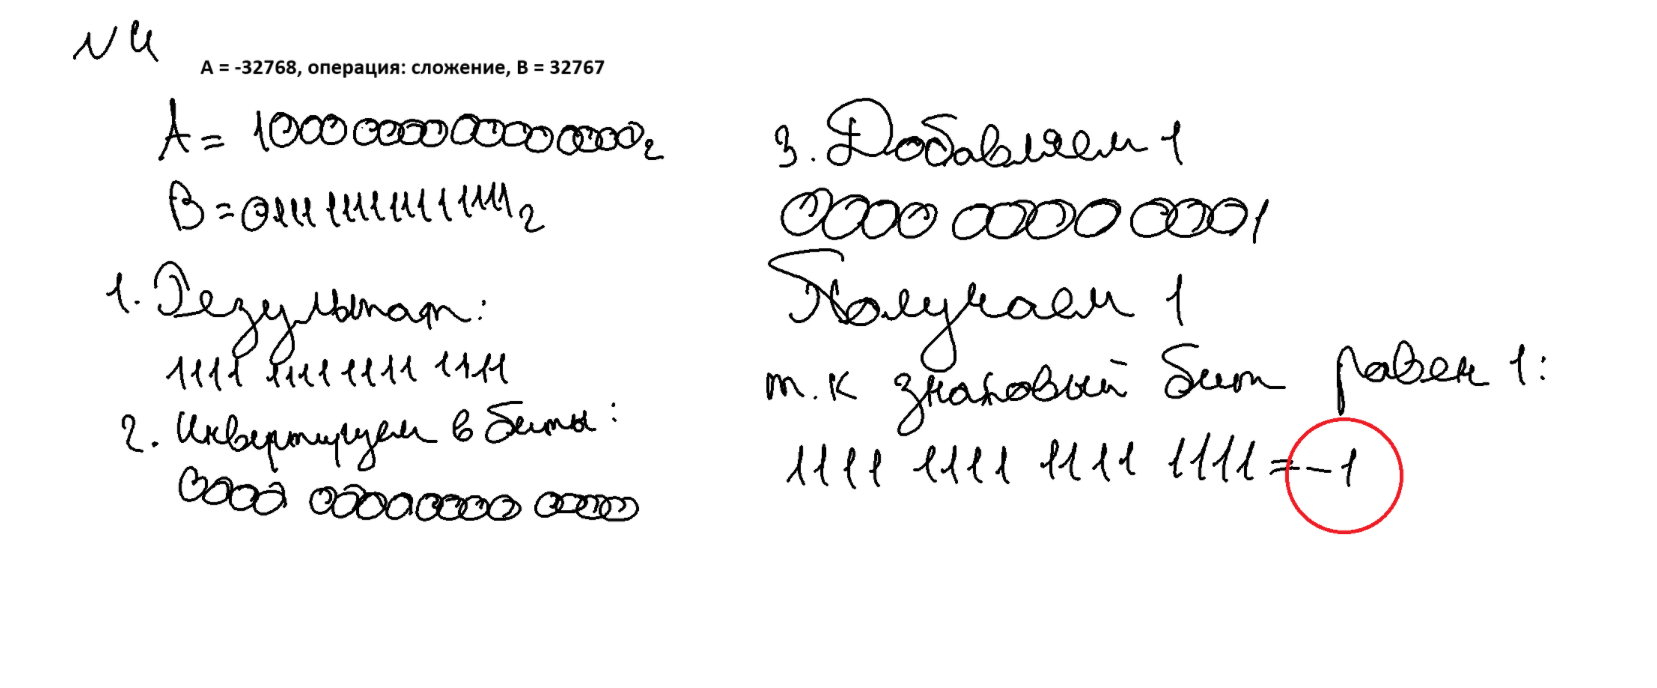 №4
A = -32768, операция: сложение, B = 32767
A = 1000 0000 0000 0000₂
B = 0111 1111 1111 1111₂
1. Результат:
1111 1111 1111 1111
2. Инвертируем в биты:
0000 0000 0000 0000
3. Добавляем 1
0000 0000 0001
Получаем 1
т.к знаковый бит равен 1:
1111 1111 1111 1111 = -1